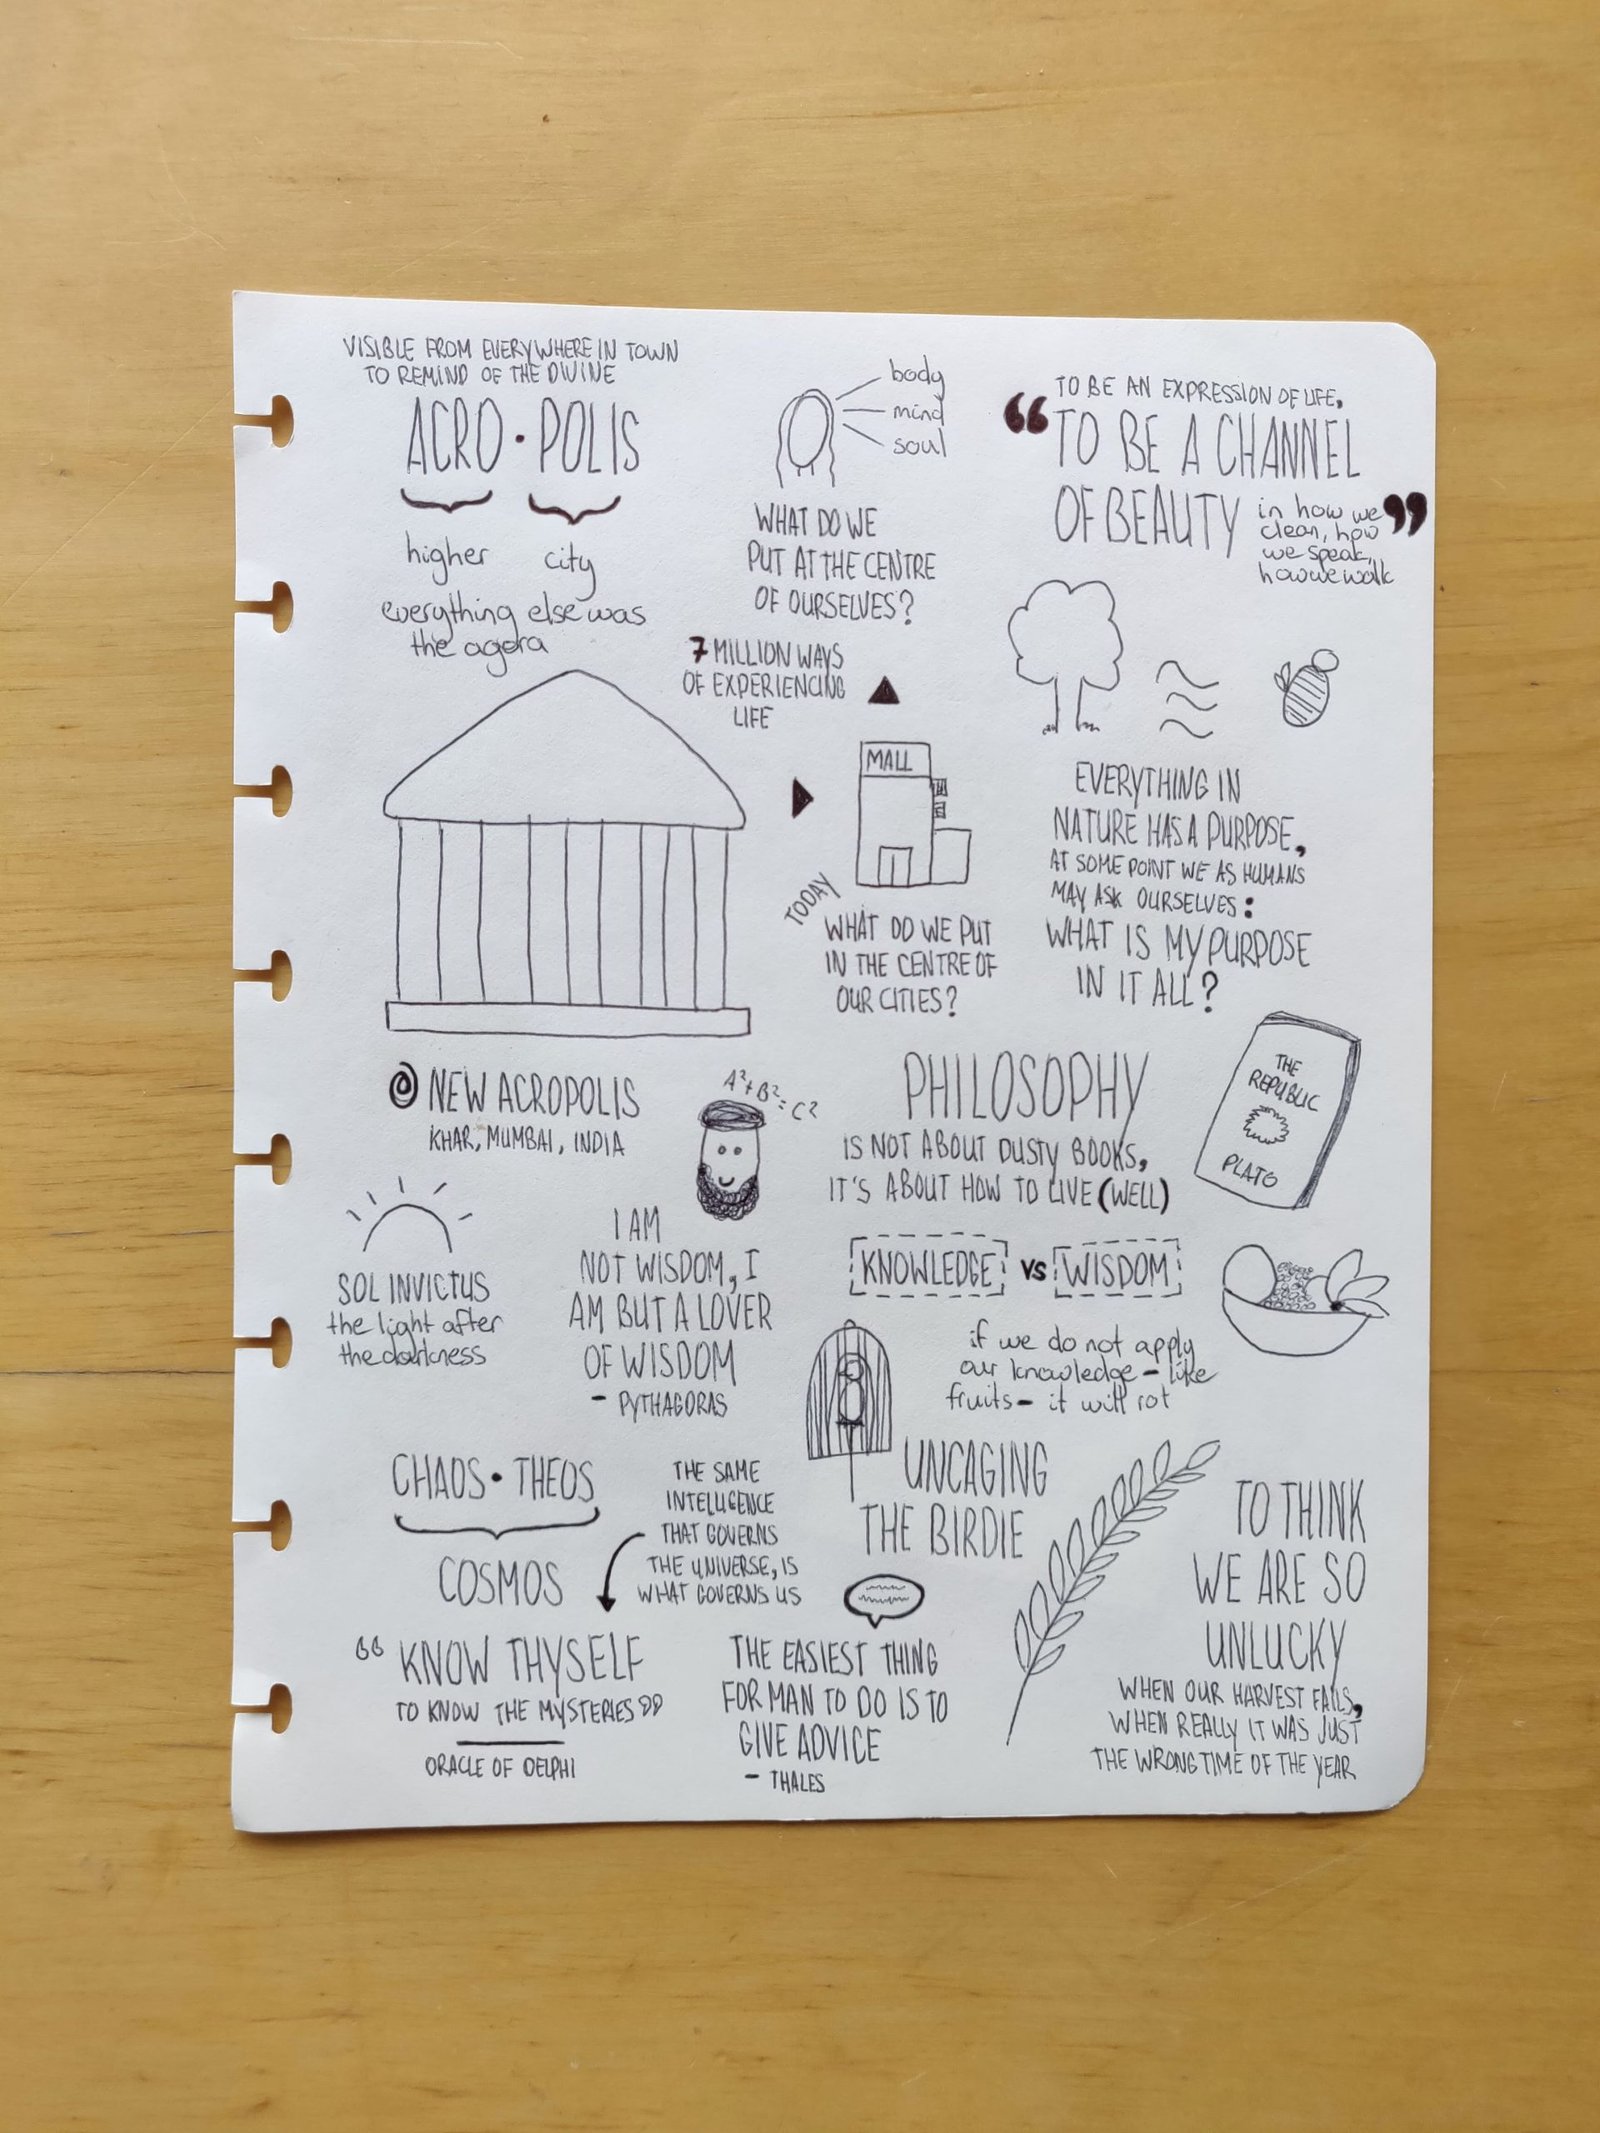 VISIBLE FROM EVERYWHERE IN TOWN
TO REMIND OF THE DIVINE
ACRO · POLIS
higher city
everything else was
the agora
body
mind
soul
WHAT DO WE
PUT AT THE CENTRE
OF OURSELVES?
“TO BE AN EXPRESSION OF LIFE,
TO BE A CHANNEL
OF BEAUTY
in how we
clean, how
we speak,
how we walk”
7 MILLION WAYS
OF EXPERIENCING
LIFE
MALL
TODAY
WHAT DO WE PUT
IN THE CENTRE OF
OUR CITIES?
EVERYTHING IN
NATURE HAS A PURPOSE,
AT SOME POINT WE AS HUMANS
MAY ASK OURSELVES:
WHAT IS MY PURPOSE
IN IT ALL?
@ NEW ACROPOLIS
KHAR, MUMBAI, INDIA
A²+B²=C²
PHILOSOPHY
IS NOT ABOUT DUSTY BOOKS,
IT'S ABOUT HOW TO LIVE (WELL)
THE
REPUBLIC
PLATO
SOL INVICTUS
the light after
the darkness
I AM
NOT WISDOM, I
AM BUT A LOVER
OF WISDOM
- PYTHAGORAS
KNOWLEDGE VS WISDOM
if we do not apply
our knowledge - like
fruits - it will rot
UNCAGING
THE BIRDIE
CHAOS · THEOS
COSMOS
THE SAME
INTELLIGENCE
THAT GOVERNS
THE UNIVERSE, IS
WHAT GOVERNS US
“KNOW THYSELF
TO KNOW THE MYSTERIES”
ORACLE OF DELPHI
THE EASIEST THING
FOR MAN TO DO IS TO
GIVE ADVICE
- THALES
TO THINK
WE ARE SO
UNLUCKY
WHEN OUR HARVEST FAILS,
WHEN REALLY IT WAS JUST
THE WRONG TIME OF THE YEAR